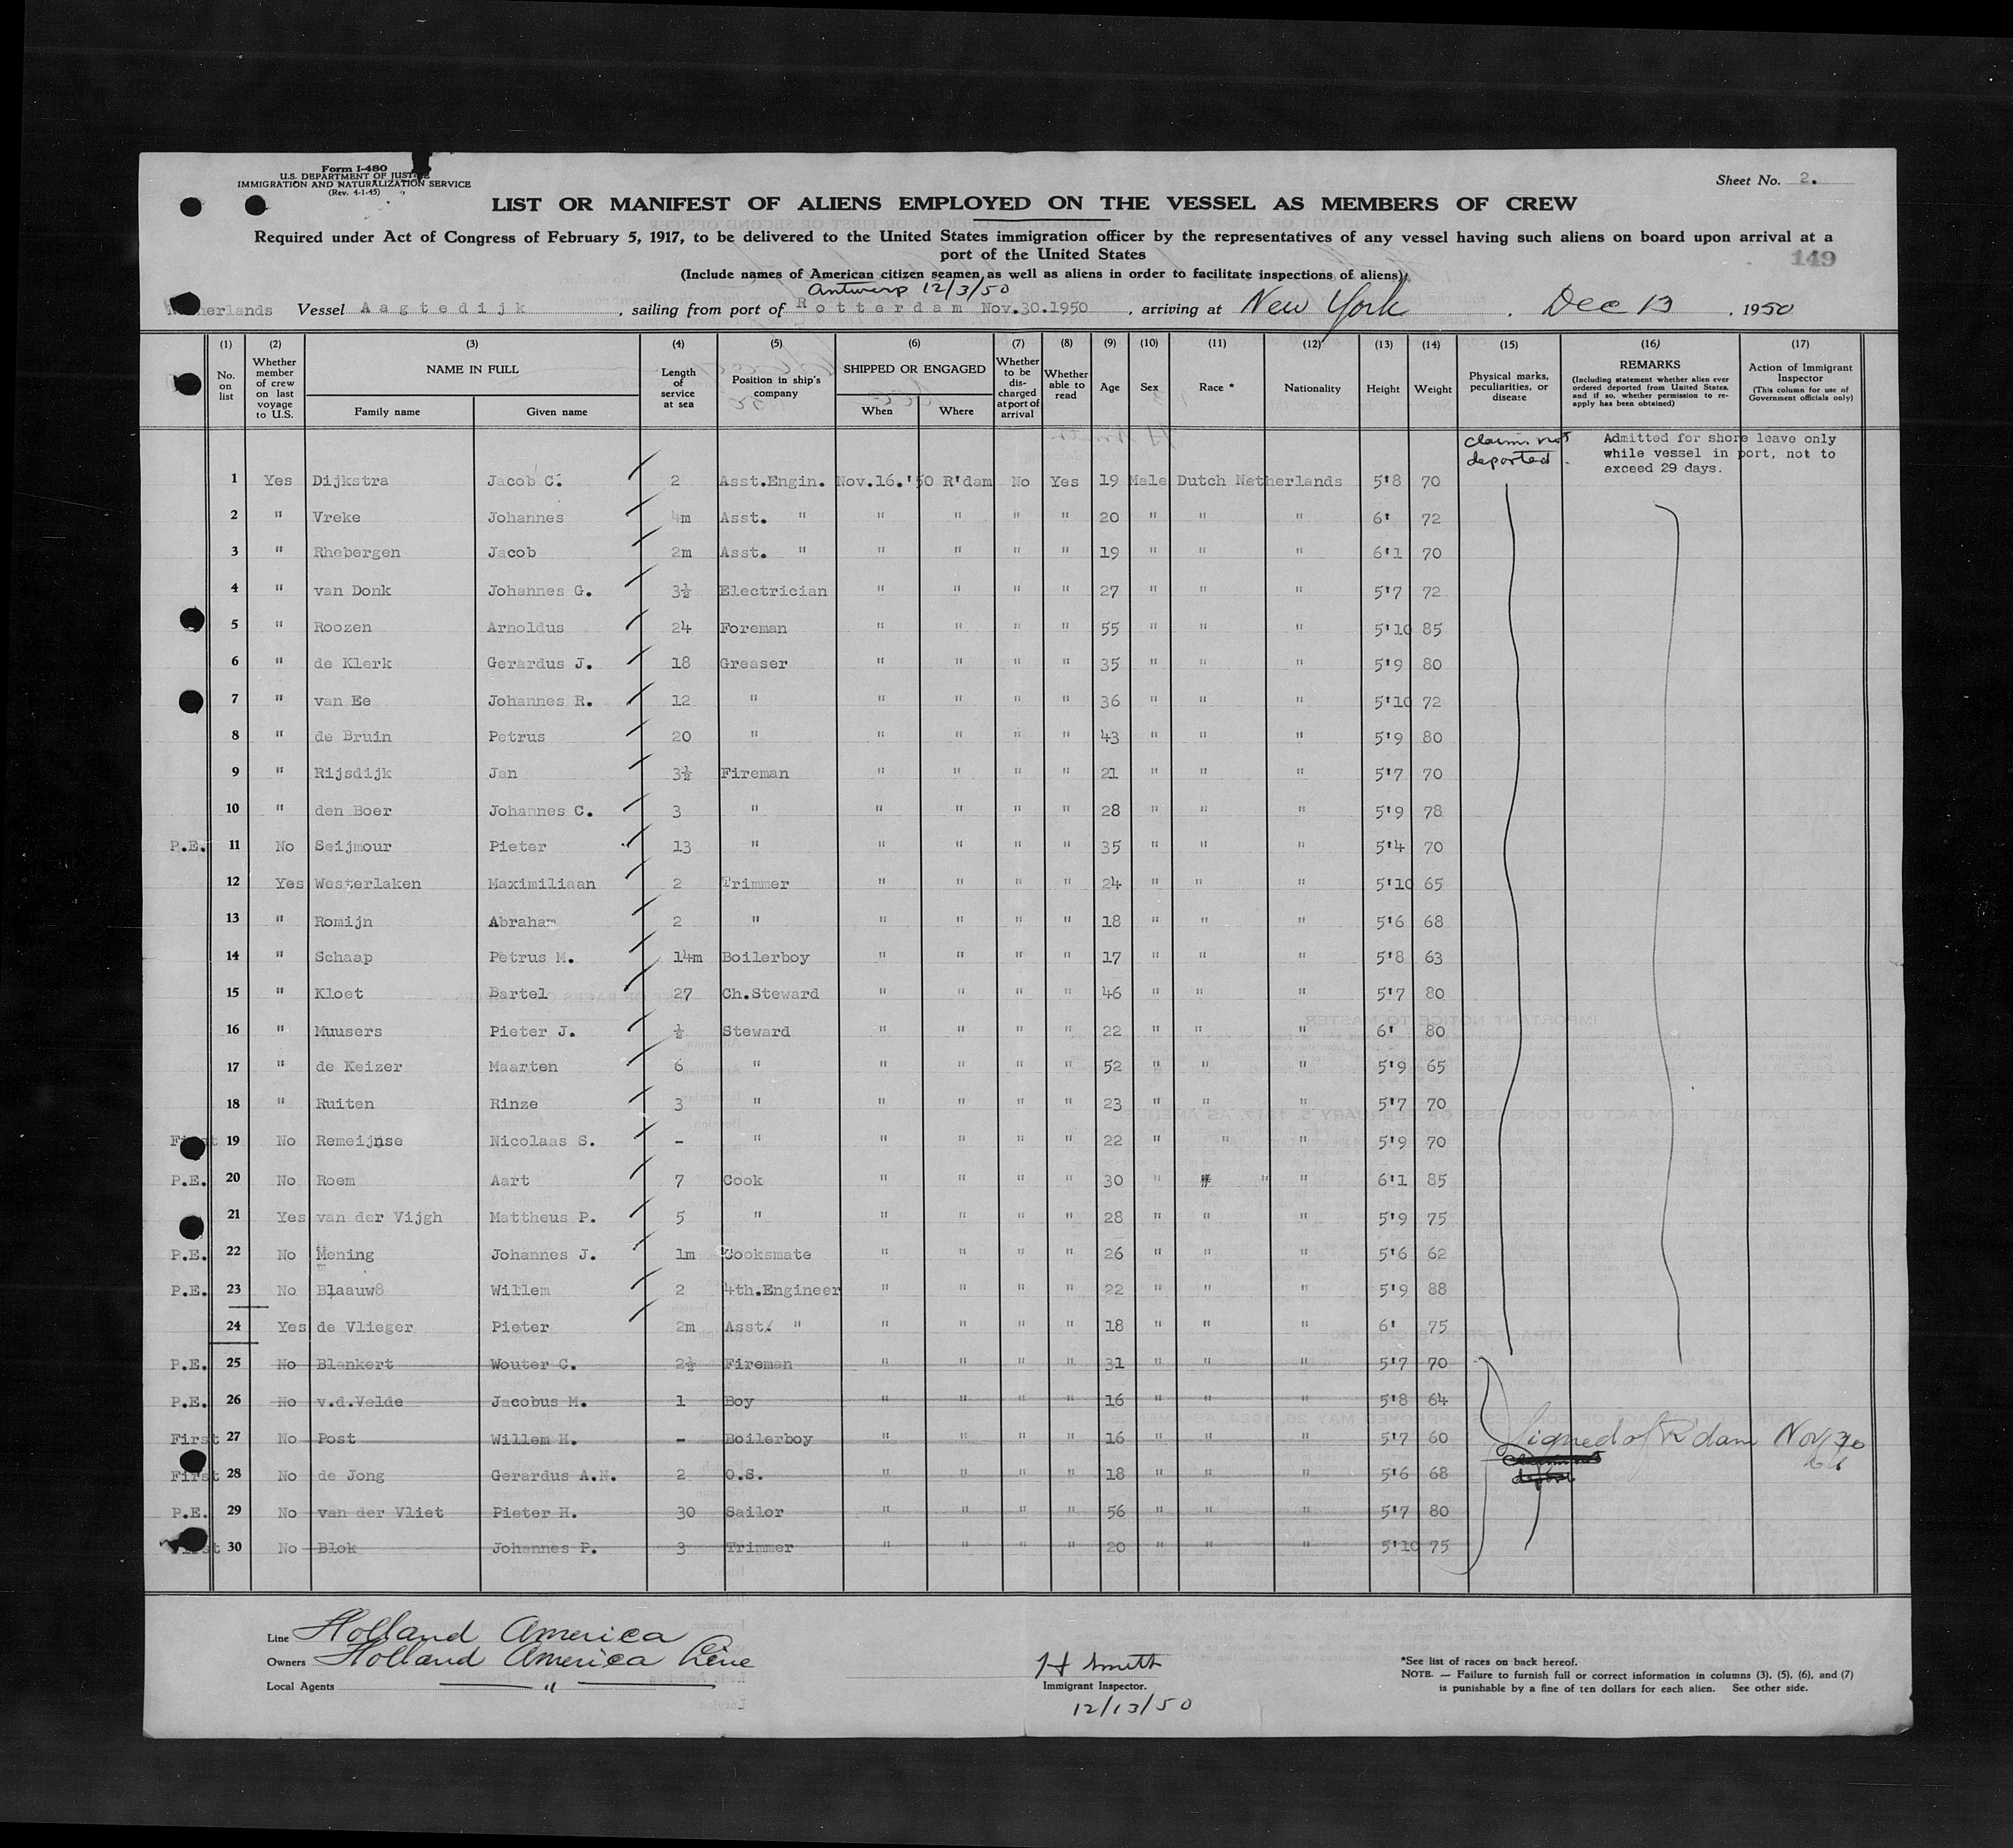 Form I-480
U.S. DEPARTMENT OF JUSTICE
IMMIGRATION AND NATURALIZATION SERVICE
(Rev. 4-1-45)
Sheet No. 2.
LIST OR MANIFEST OF ALIENS EMPLOYED ON THE VESSEL AS MEMBERS OF CREW
Required under Act of Congress of February 5, 1917, to be delivered to the United States immigration officer by the representatives of any vessel having such aliens on board upon arrival at a
port of the United States
149
(Include names of American citizen seamen, as well as aliens in order to facilitate inspections of aliens)
Antwerp 12/3/50
Netherlands Vessel Aagtedijk, sailing from port of Rotterdam Nov.30.1950, arriving at New York, Dec 13, 1950
(1) (2) (3) (4) (5) (6) (7) (8) (9) (10) (11) (12) (13) (14) (15) (16) (17)
No. on list | Whether member of crew on last voyage to U.S. | NAME IN FULL Family name Given name | Length of service at sea | Position in ship's company | SHIPPED OR ENGAGED When Where | Whether to be discharged at port of arrival | Whether able to read | Age | Sex | Race * | Nationality | Height | Weight | Physical marks, peculiarities, or disease | REMARKS (Including statement whether alien ever ordered deported from United States, and if so, whether permission to re-apply has been obtained) | Action of Immigrant Inspector (This column for use of Government officials only)
claims not deported.
Admitted for shore leave only
while vessel in port, not to
exceed 29 days.
1 Yes Dijkstra Jacob C. 2 Asst.Engin. Nov.16.'50 R'dam No Yes 19 Male Dutch Netherlands 5'8 70
2 " Vreke Johannes 4m Asst. " " " " " 20 " " " 6' 72
3 " Rhebergen Jacob 2m Asst. " " " " " 19 " " " 6'1 70
4 " van Donk Johannes G. 3½ Electrician " " " " 27 " " " 5'7 72
5 " Roozen Arnoldus 24 Foreman " " " " 55 " " " 5'10 85
6 " de Klerk Gerardus J. 18 Greaser " " " " 35 " " " 5'9 80
7 " van Ee Johannes R. 12 " " " " " 36 " " " 5'10 72
8 " de Bruin Petrus 20 " " " " " 43 " " " 5'9 80
9 " Rijsdijk Jan 3½ Fireman " " " " 21 " " " 5'7 70
10 " den Boer Johannes C. 3 " " " " " 28 " " " 5'9 78
P.E. 11 No Seijmour Pieter 13 " " " " " 35 " " " 5'4 70
12 Yes Westerlaken Maximiliaan 2 Trimmer " " " " 24 " " " 5'10 65
13 " Romijn Abraham 2 " " " " " 18 " " " 5'6 68
14 " Schaap Petrus M. 14m Boilerboy " " " " 17 " " " 5'8 63
15 " Kloet Bartel 27 Ch.Steward " " " " 46 " " " 5'7 80
16 " Muusers Pieter J. ½ Steward " " " " 22 " " " 6' 80
17 " de Keizer Maarten 6 " " " " " 52 " " " 5'9 65
18 " Ruiten Rinze 3 " " " " " 23 " " " 5'7 70
First 19 No Remeijnse Nicolaas S. - " " " " " 22 " " " 5'9 70
P.E. 20 No Roem Aart 7 Cook " " " " 30 " " " 6'1 85
21 Yes van der Vijgh Mattheus P. 5 " " " " " 28 " " " 5'9 75
P.E. 22 No Mening Johannes J. 1m Cooksmate " " " " 26 " " " 5'6 62
P.E. 23 No Blaauw8 Willem 2 4th.Engineer " " " " 22 " " " 5'9 88
24 Yes de Vlieger Pieter 2m Asst. " " " " " 18 " " " 6' 75
P.E. 25 No Blankert Wouter C. 2½ Fireman " " " " 31 " " " 5'7 70
P.E. 26 No v.d.Velde Jacobus M. 1 Boy " " " " 16 " " " 5'8 64
First 27 No Post Willem H. - Boilerboy " " " " 16 " " " 5'7 60 Signed of R'dam Nov 30
First 28 No de Jong Gerardus A.N. 2 O.S. " " " " 18 " " " 5'6 68
P.E. 29 No van der Vliet Pieter H. 30 Sailor " " " " 56 " " " 5'7 80
First 30 No Blok Johannes P. 3 Trimmer " " " " 20 " " " 5'10 75
Line Holland America
Owners Holland America Line
Local Agents "
H Smith
Immigrant Inspector.
12/13/50
*See list of races on back hereof.
NOTE. — Failure to furnish full or correct information in columns (3), (5), (6), and (7)
is punishable by a fine of ten dollars for each alien. See other side.